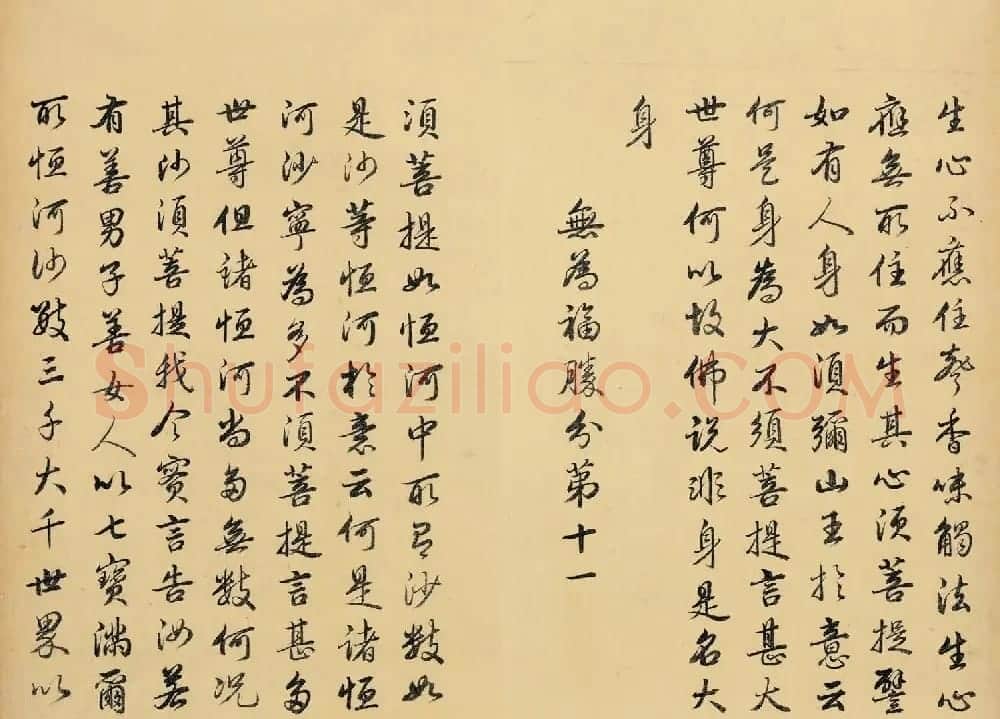 生心不應住聲香味觸法生心
應無所住而生其心須菩提譬
如有人身如須彌山王於意云
何是身為大不須菩提言甚大
世尊何以故佛說非身是名大
身
無為福勝分第十一
須菩提如恒河中所有沙數如
是沙等恒河於意云何是諸恒
河沙寧為多不須菩提言甚多
世尊但諸恒河尚多無數何況
其沙須菩提我今實言告汝若
有善男子善女人以七寶滿爾
所恒河沙數三千大千世界以
Shufaziliao.COM